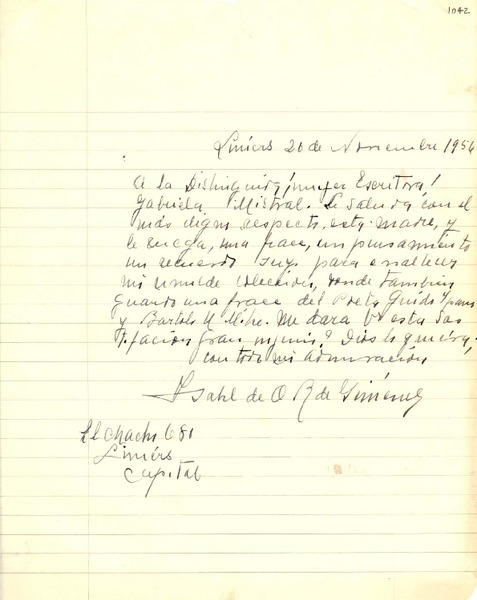 1042
Liniers 20 de Noviembre 1956
A la Distinguida ¡mujer Escritora!
Gabriela Mistral. Le saluda con el
más digno respecto, esta madre, y
le ruega, una frace, un pensamiento
un recuerdo suyo para enaltecer
mi umilde colección, donde tambien
guardo una frace del Poeta Guido Spano
y Bartolo M Mitre. Me dara Vd esta Sas
tifación gran mujer? Dios lo quiera,
con todo mi admiración
Isabel de O R de Giménez
El Chacho 681
Liniers
Capital